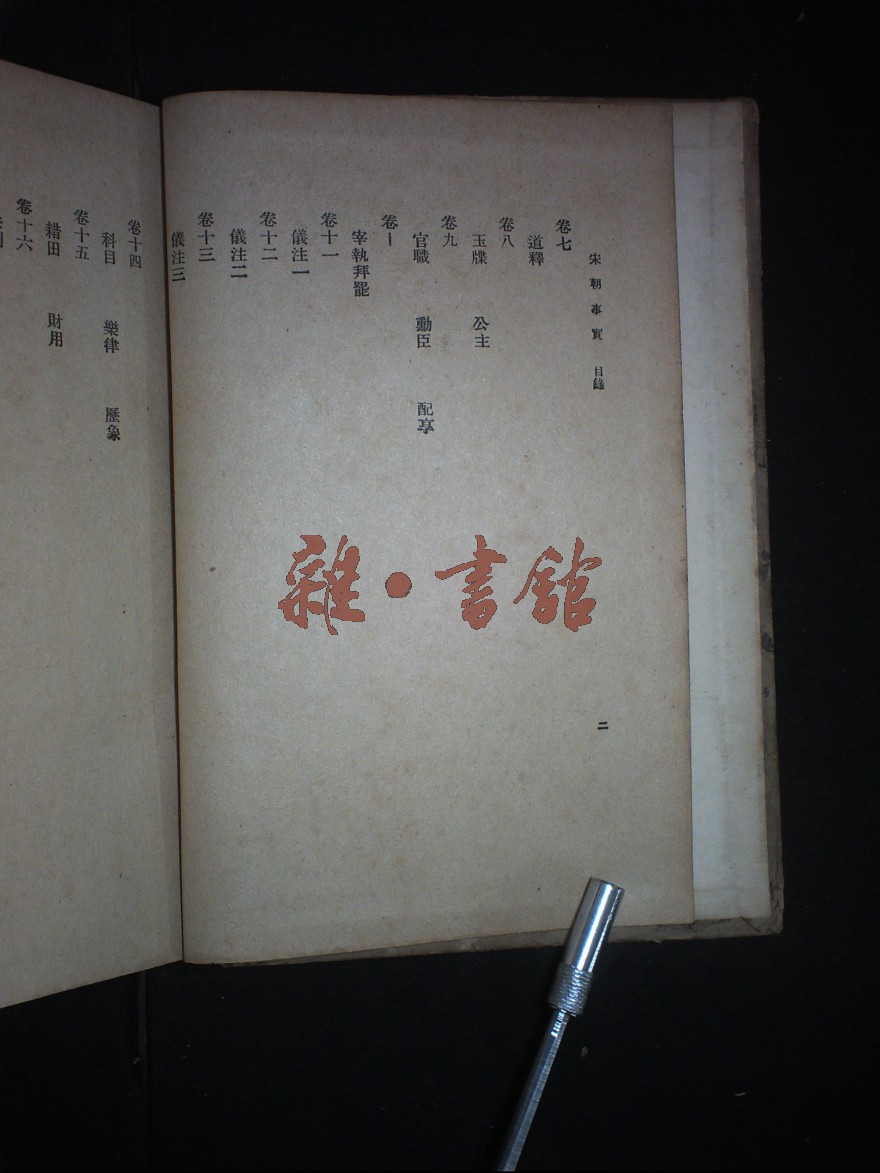 宋朝事實 目錄
卷七
道釋
卷八
玉牒 公主
卷九
官職 勳臣 配享
卷十
宰執拜罷
卷十一
儀注一
卷十二
儀注二
卷十三
儀注三
卷十四
科目 樂律 歷象
卷十五
耤田 財用
卷十六
二
雜·書館